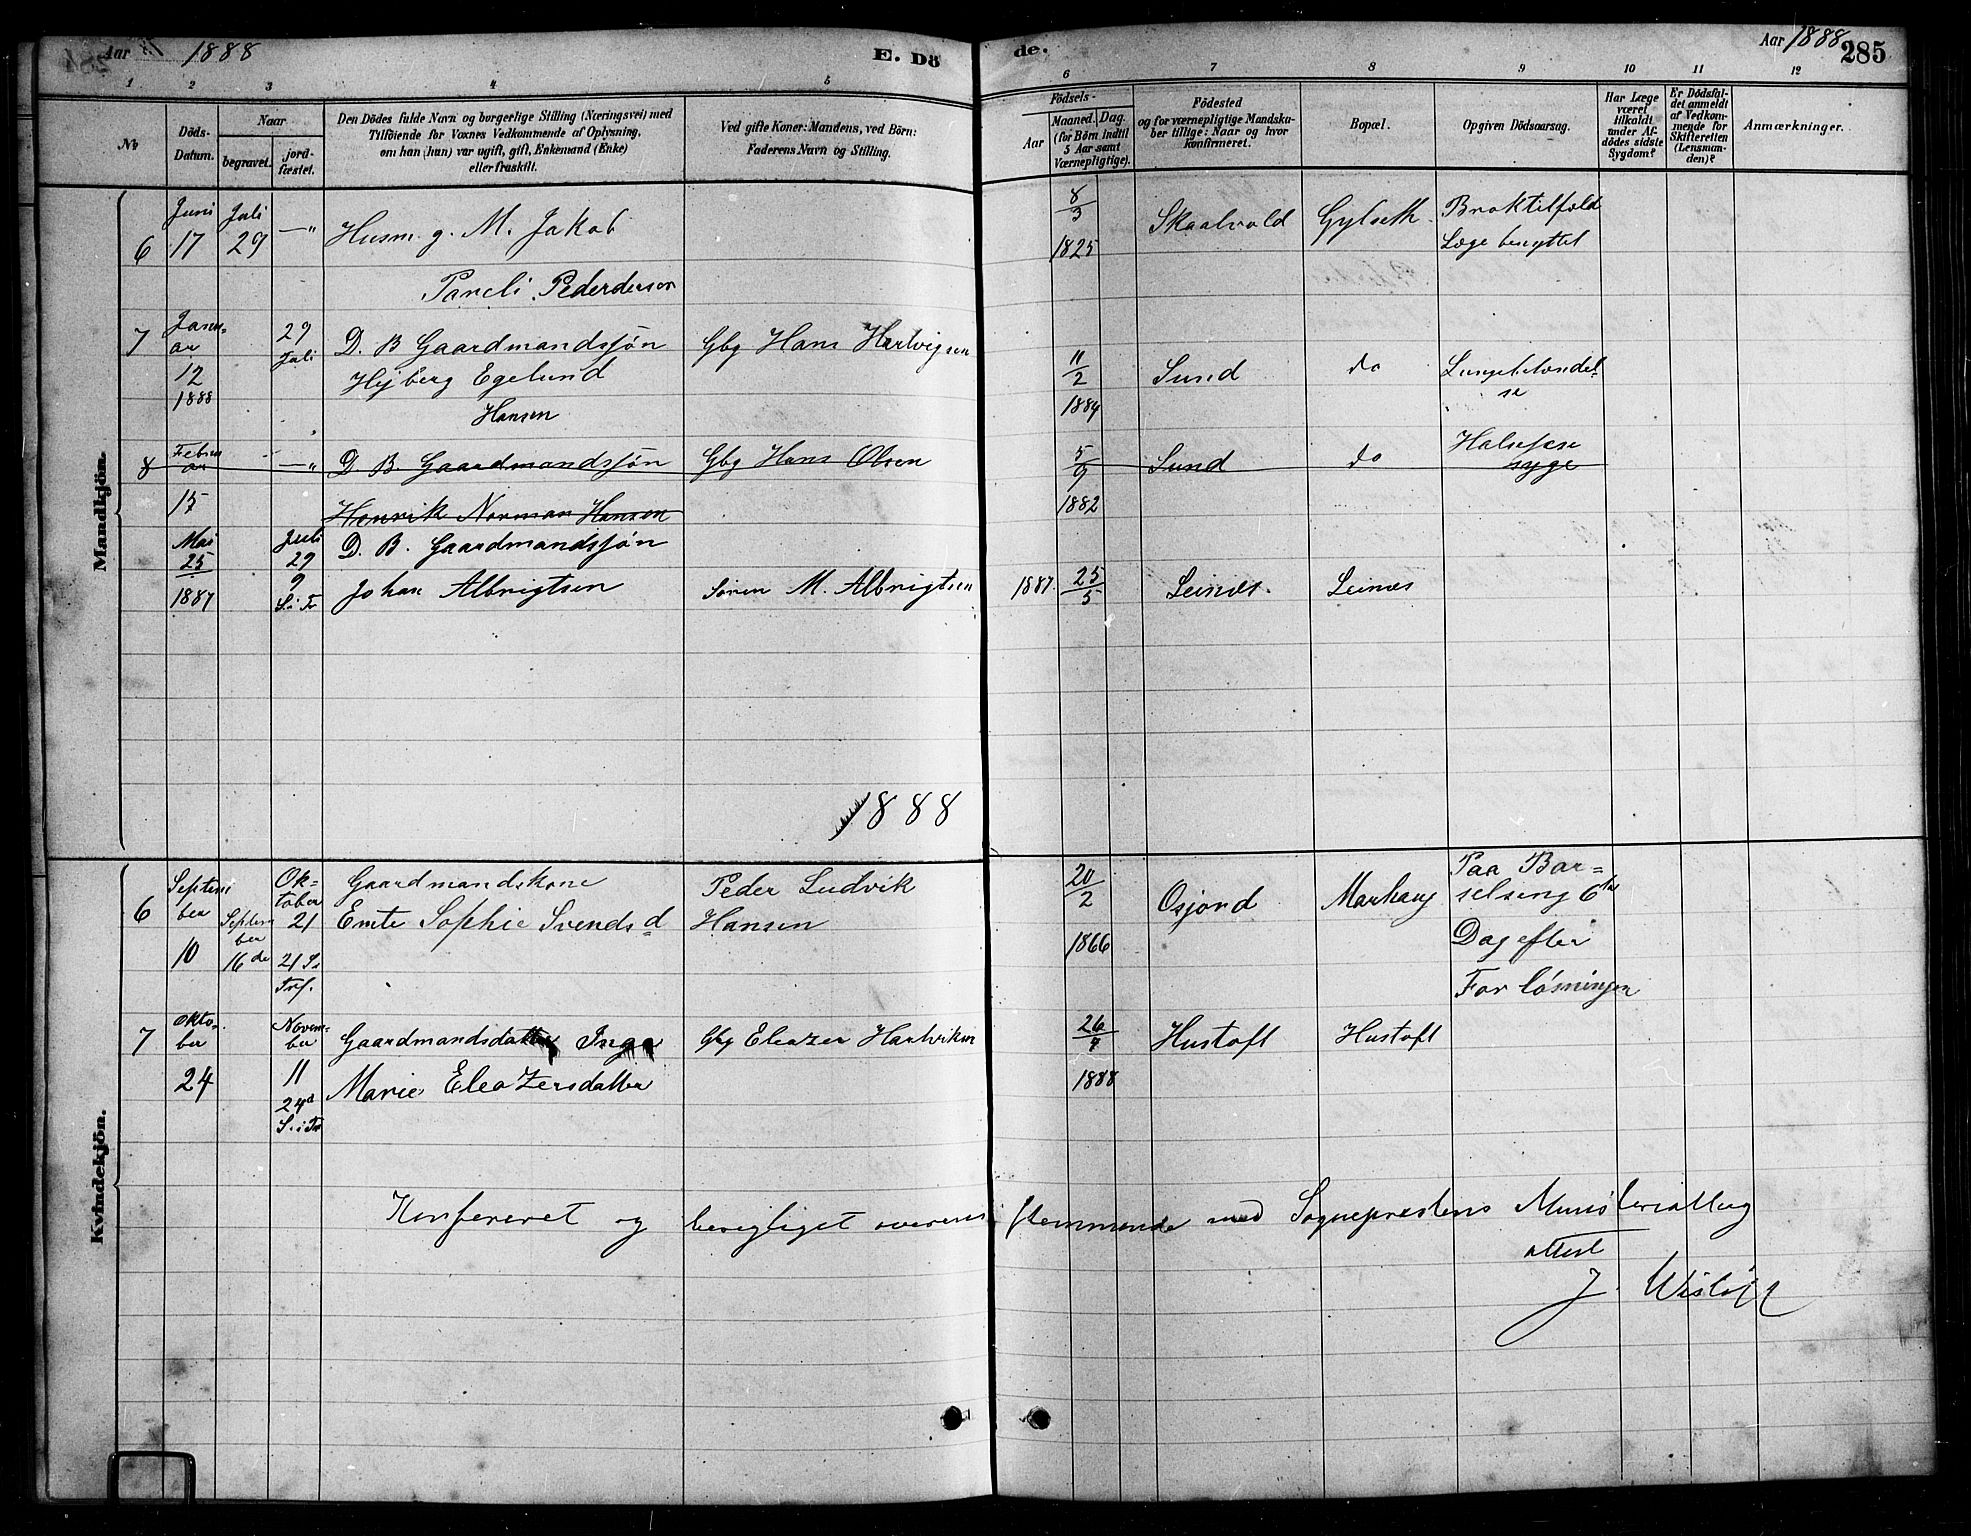 Aar 1888
E. Dö
de.
Aar 1888
285
1 2 3 4 5 6 7 8 9 10 11 12
No
Döds-Datum.
Naar
begravet.
jordfæstet.
Den Dödes fulde Navn og borgerlige Stilling (Næringsvei) med
Tilföiende for Voxnes Vedkommende af Oplysning,
om han (hun) var ugift, gift, Enkemand (Enke)
eller fraskilt.
Ved gifte Koner: Mandens, ved Börn:
Faderens Navn og Stilling.
Födsels-
Aar
Maaned. Dag.
(for Börn indtil
5 Aar samt
Værnepligtige).
Födested
og for værnepligtige Mandska-
ber tillige: Naar og hvor
konfirmeret.
Bopæl.
Opgiven Dödsaarsag.
Har Læge
været
tilkaldt
under Af-
dödes sidste
Sygdom?
Er Dödsfal-
det anmeldt
af Vedkom-
mende for
Skifteretten
(Lensman-
den)?
Anmærkninger.
Mandkjön.
6 Juni 17 Juli 29 —"— Husm. g. M. Jakob
Pedersen
8/3 1825 Skaalvold Gylseth Braktilfæld
Læge benyttet
7 Janu-
ar
12
1888
29
Juli
D. B Gaardmandssøn
Hejberg Egelund
Hansen
Gbg Hans Hartvigsen
11/2 1884 Sund do Lungebetændel-
se
8 Febru
ar
15
—"—
D B Gaardmandssøn
Henrik Norman Hansen
Gbg Hans Olsen
5/9 1882 Sund do Halsesse
syge
Mai
25
1887
Juli
29
9
S. i Tr
D. B. Gaardmandssøn
Johan Albrigtsen
Søren M. Albrigtsen
1887. 25/5 Leinæs Leinæs
1888
Kvindekjön.
6 Septem
ber
10
Septem
ber
16de
Ok-
tober
21
21 S.
Trf.
Gaardmandskone
Emte Sophie Svendsd
Peder Ludvik
Hansen
20/2 1866 Osjord Marhaug Paa Bar-
selseng 6te
Dag efter
Forløsningen
7 Okto-
ber
24
Novem-
ber
11
24d
S. i Tr
Gaardmandsdatter Inga
Marie Eleazersdatter
Gbg Eleazer Hartviksen
26/7 1888 Hustoft Hustoft
Konfereret og overens stemmende med Sogneprestens Ministerialbog
attest
J. Wisløff